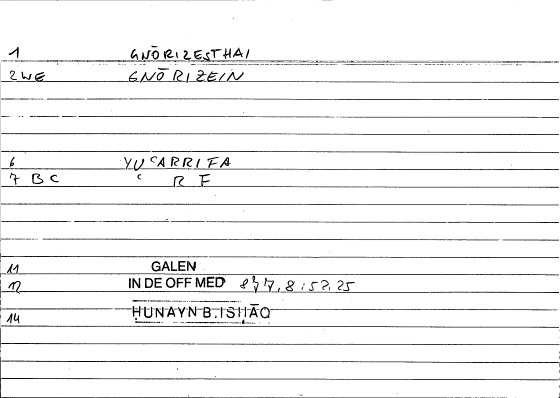 1 GNŌRIZESTHAI
2WE GNŌRIZEIN
6 YUʿARRIFA
7 BC ʿ R F
11 GALEN
12 IN DE OFF MED 7, 8 : 52, 25
14 ḤUNAYN B. ISḤĀQ